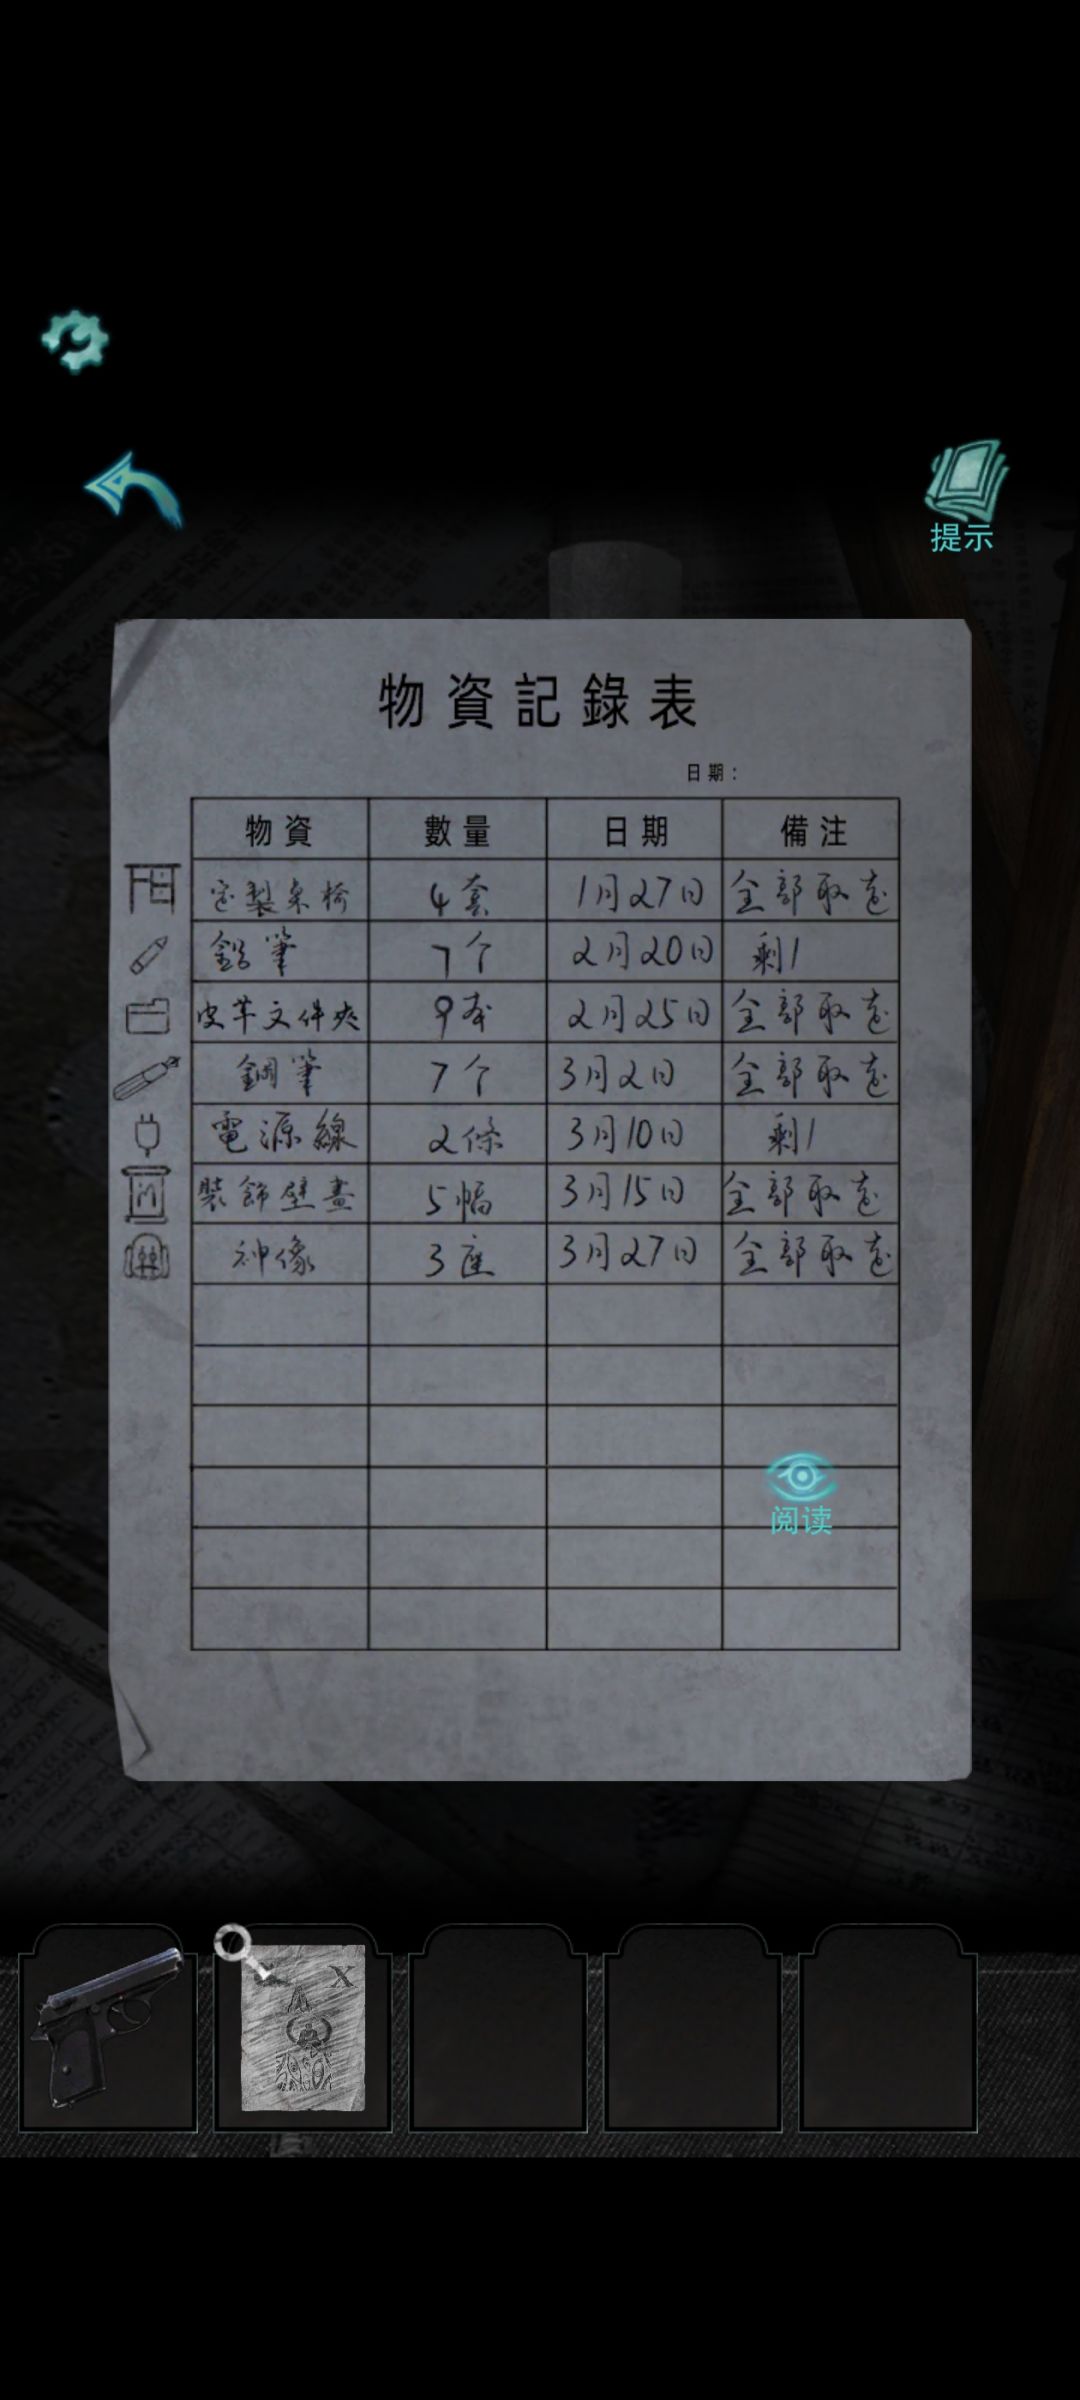 提示
物資記錄表
日期：
物資 數量 日期 備注
定製桌椅 4套 1月27日 全部取走
鉛筆 7个 2月20日 剩1
皮革文件夾 9本 2月25日 全部取走
鋼筆 7个 3月2日 全部取走
電源線 2條 3月10日 剩1
裝飾壁畫 5幅 3月15日 全部取走
神像 3座 3月27日 全部取走
阅读
X